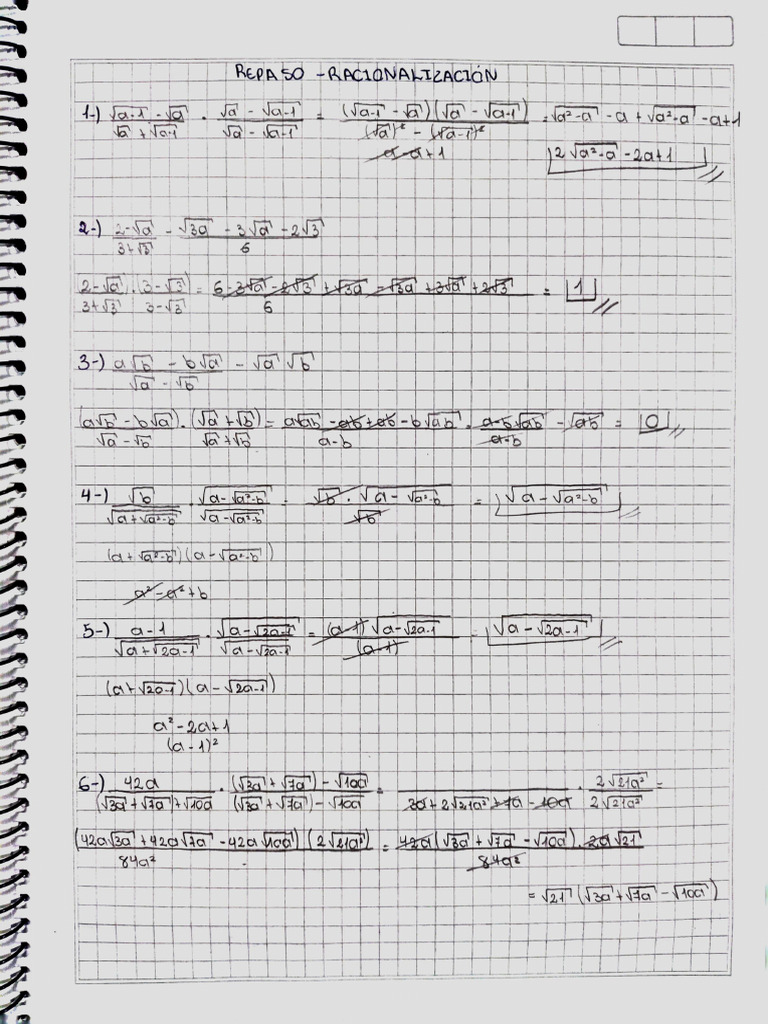 REPASO - RACIONALIZACIÓN
1-) (√(a-1) - √a)/(√a + √(a-1)) · (√a - √(a-1))/(√a - √(a-1)) = ((√(a-1) - √a)(√a - √(a-1)))/((√a)² - (√(a-1))²) = √(a²-a) - a + √(a²-a) - a+1
a - a + 1
2√(a²-a) - 2a+1
2-) (2-√a)/(3+√3) - (√3a - 3√a - 2√3)/6
(2-√a)/(3+√3) · (3-√3)/(3-√3) = (6 - 3√a - 2√3 + √3a - √3a + 3√a + 2√3)/6 = 1
3-) (a√b - b√a)/(√a - √b) - √a √b
(a√b - b√a)/(√a - √b) · (√a + √b)/(√a + √b) = (a√ab - ab + ab - b√ab)/(a-b) · ((a-b)√ab)/(a-b) - √ab = 0
4-) √b/√(a+√(a²-b)) · √(a-√(a²-b))/√(a-√(a²-b)) = (√b · √(a-√(a²-b)))/√b = √(a-√(a²-b))
(a+√(a²-b))(a-√(a²-b))
a² - a² + b
5-) (a-1)/√(a+√(2a-1)) · √(a-√(2a-1))/√(a-√(2a-1)) = ((a-1)√(a-√(2a-1)))/(a-1) = √(a-√(2a-1))
(a+√(2a-1))(a-√(2a-1))
a² - 2a + 1
(a-1)²
6-) 42a/((√3a + √7a) + √10a) · ((√3a + √7a) - √10a)/((√3a + √7a) - √10a) = /(3a + 2√21a² + 7a - 10a) · 2√21a²/2√21a² =
((42a√3a + 42a√7a - 42a√10a)(2√21a²))/84a² = (42a(√3a + √7a - √10a) · 2a√21)/84a²
= √21 (√3a + √7a - √10a)